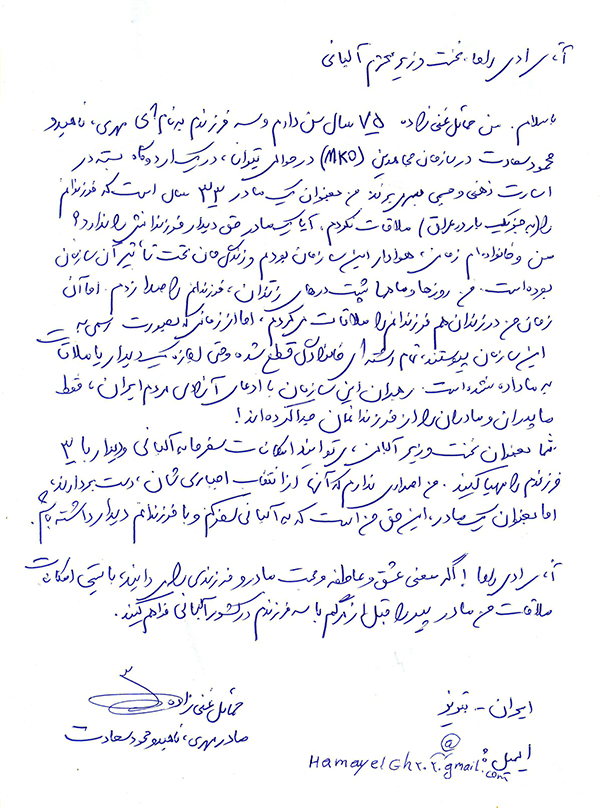 آقای ادی راما، نخست وزیر محترم آلبانی
با سلام. من حمائل غنی زاده ۷۵ سال سن دارم و سه فرزندم به نام های مهری، ناهید و
محمود سعادت در سازمان مجاهدین (MKO) در حوالی تیرانا، در یک اردوگاه بسته در
اسارت ذهنی و جسمی بسر می برند. من بعنوان یک مادر ۳۳ سال است که فرزندانم
را (به جز یکبار در عراق) ملاقات نکردم، آیا یک مادر حق دیدار فرزندانش را ندارد؟
من و خانواده ام زمانی، هوادار این سازمان بودم و زندگی مان تحت تأثیر آن سازمان
بوده است. من روزها و ماهها پشت درهای زندان، فرزندانم را صدا زدم. اما آن
زمان من در زندان هم فرزندانم را ملاقات می کردم، اما از زمانی که بصورت رسمی به
این سازمان پیوستند، تمام رشته های خانوادگی قطع شده و حتی اجازه یک دیدار یا ملاقات
به ما داده نشده است. رهبران این سازمان با ادعای آزادی مردم ایران، فقط
ما پدران و مادران را از فرزندانمان جدا کرده اند!
شما بعنوان نخست وزیر آلبانی، می توانید امکانات سفر ما به آلبانی و دیدار با ۳
فرزندم را مهیا کنید. من اصراری ندارم که آنها از انتخاب اجباری شان، دست بردارند،
اما بعنوان یک مادر، این حق من است که به آلبانی سفر کنم و با فرزندانم دیدار داشته باشم.
آقای ادی راما! اگر معنی عشق و عاطفه و محبت مادر و فرزندی را می دانید، بایستی امکانات
ملاقات من مادر پیر را قبل از مرگم با سه فرزندم در کشور آلبانی فراهم کنید.
حمائل غنی زاده
مادر مهری، ناهید و محمود سعادت
ایران - تبریز
ایمیل: